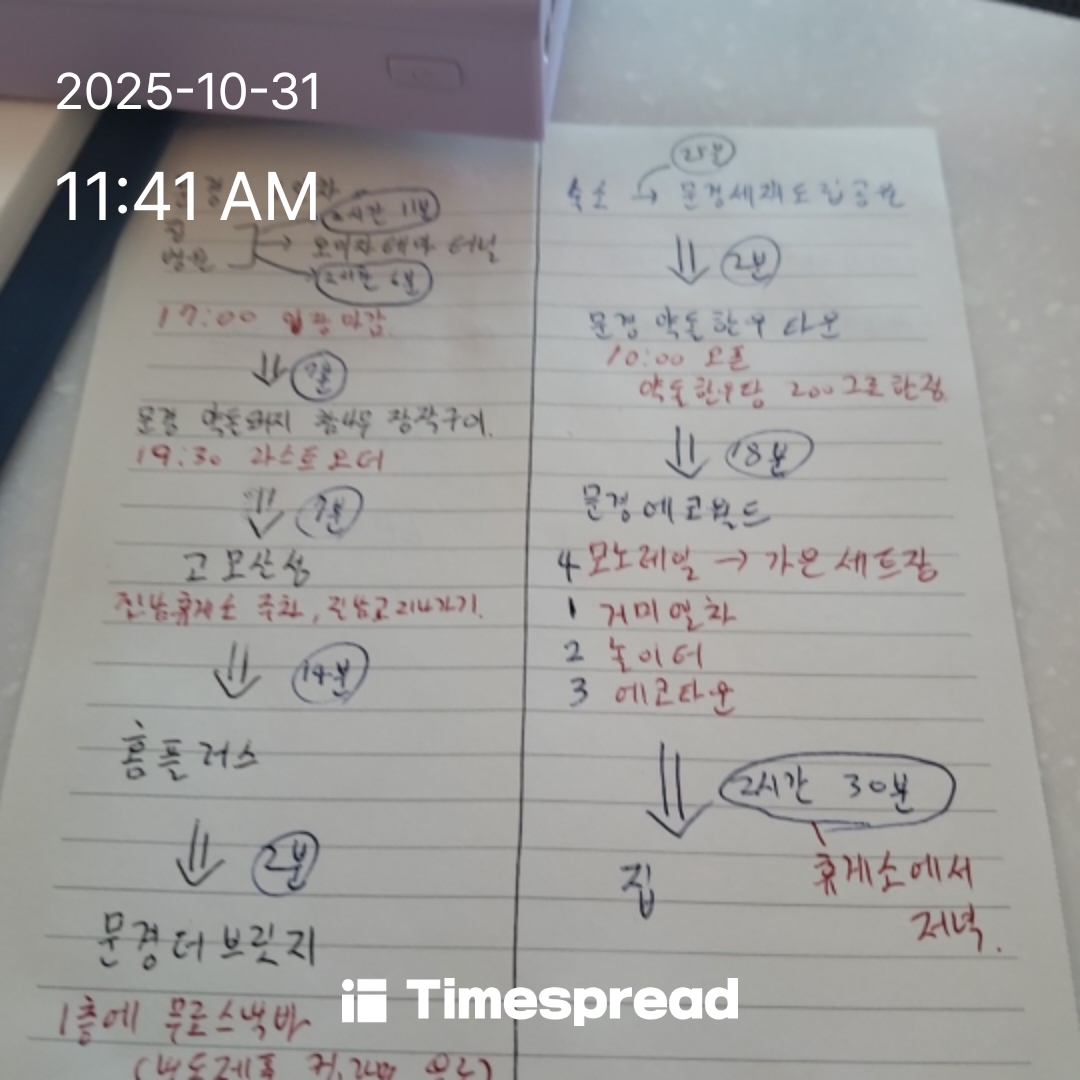 2025-10-31
11:41 AM
2시간 11분
집
병원
→ 오미자 테마 터널
2시간 6분
17:00 입장마감
문경 약돌돼지 참나무 장작구이.
19:30 라스트오더
7분
고모산성
진남휴게소 주차, 진남교 지나가기.
14분
홈플러스
2분
문경더브릿지
1층에 무료스낵바
25분
숙소 → 문경새재도립공원
2분
문경 약돌한우 타운
10:00 오픈
약돌한우탕 200그릇 한정
18분
문경에코월드
4 모노레일 → 가은세트장
1 거미열차
2 놀이터
3 에코타운
2시간 30분
집
휴게소에서
저녁.
Timespread